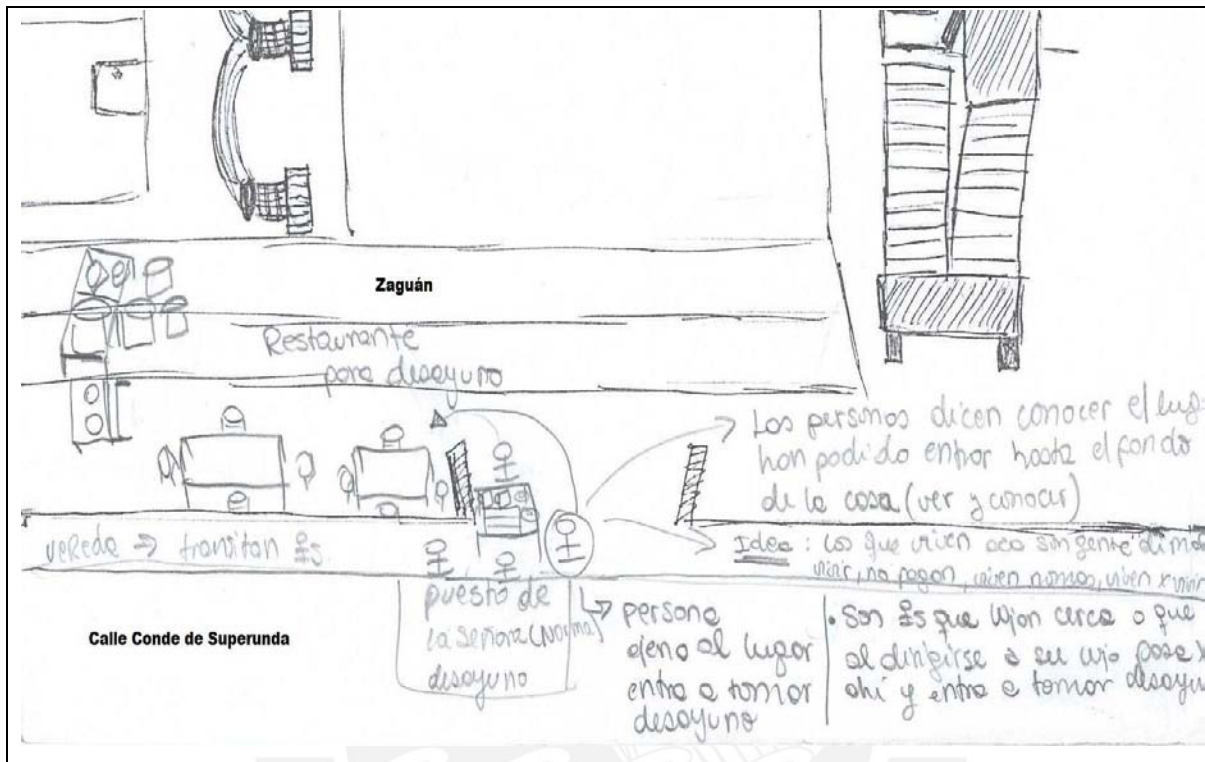 Zaguán
Restaurante
para desayuno
Las personas dicen conocer el lug
han podido entrar hasta el fondo
de la casa (ver y conocer)
vereda ⇒ transitan
Idea: Los que viven acá son gente di mal
vivir, no pagan, viven nomas, viven x vivir
Calle Conde de Superunda
puesto de
la señora (Norma)
desayuno
persona
ajena al lugar
entra a tomar
desayuno
• Son que cerca o que
al dirigirse a su pasa x
ahí y entra a tomar desayu